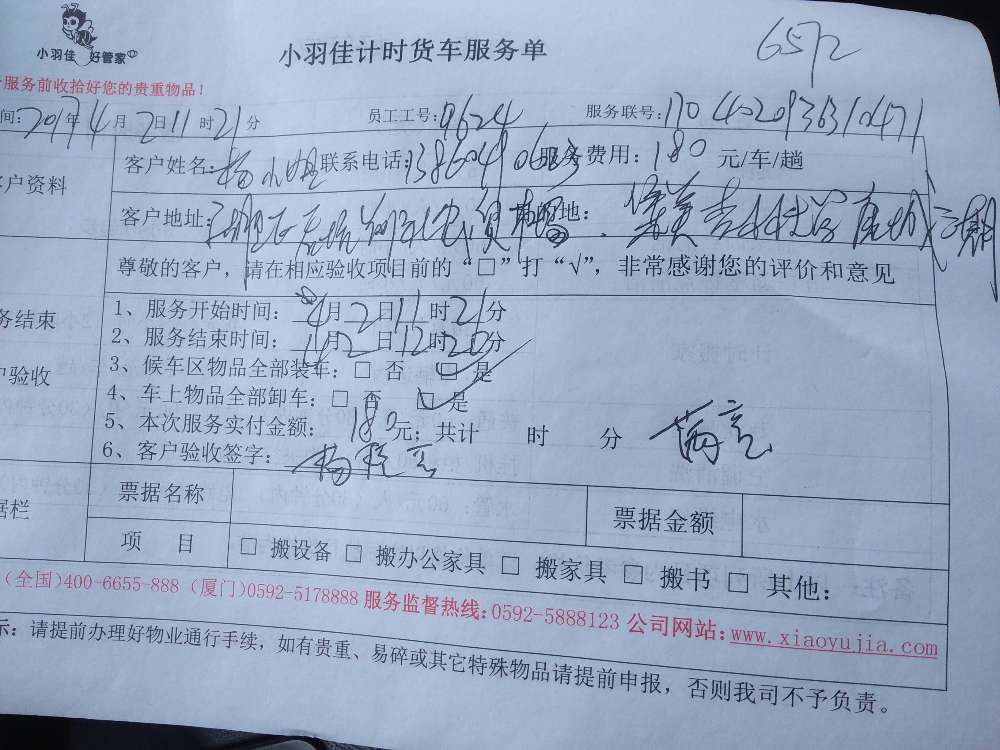 小羽佳 好管家
小羽佳计时货车服务单
6572
服务前收拾好您的贵重物品！
间：2017年4月2日11时21分 员工工号：9624 服务联号：1704020936310471
客户资料
客户姓名：杨小姐 联系电话： 服务费用：180元/车/趟
客户地址：
尊敬的客户，请在相应验收项目前的“□”打“√”，非常感谢您的评价和意见
务结束
户验收
1、服务开始时间：4月2日11时21分
2、服务结束时间：4月2日12时20分
3、候车区物品全部装车：□ 否 □ 是
4、车上物品全部卸车：□ 否 □ 是
5、本次服务实付金额：180元；共计 时 分
6、客户验收签字：
据栏
票据名称 票据金额
项 目 □ 搬设备 □ 搬办公家具 □ 搬家具 □ 搬书 □ 其他：
(全国)400-6655-888 (厦门)0592-5178888 服务监督热线：0592-5888123 公司网站：www.xiaoyujia.com
示：请提前办理好物业通行手续，如有贵重、易碎或其它特殊物品请提前申报，否则我司不予负责。